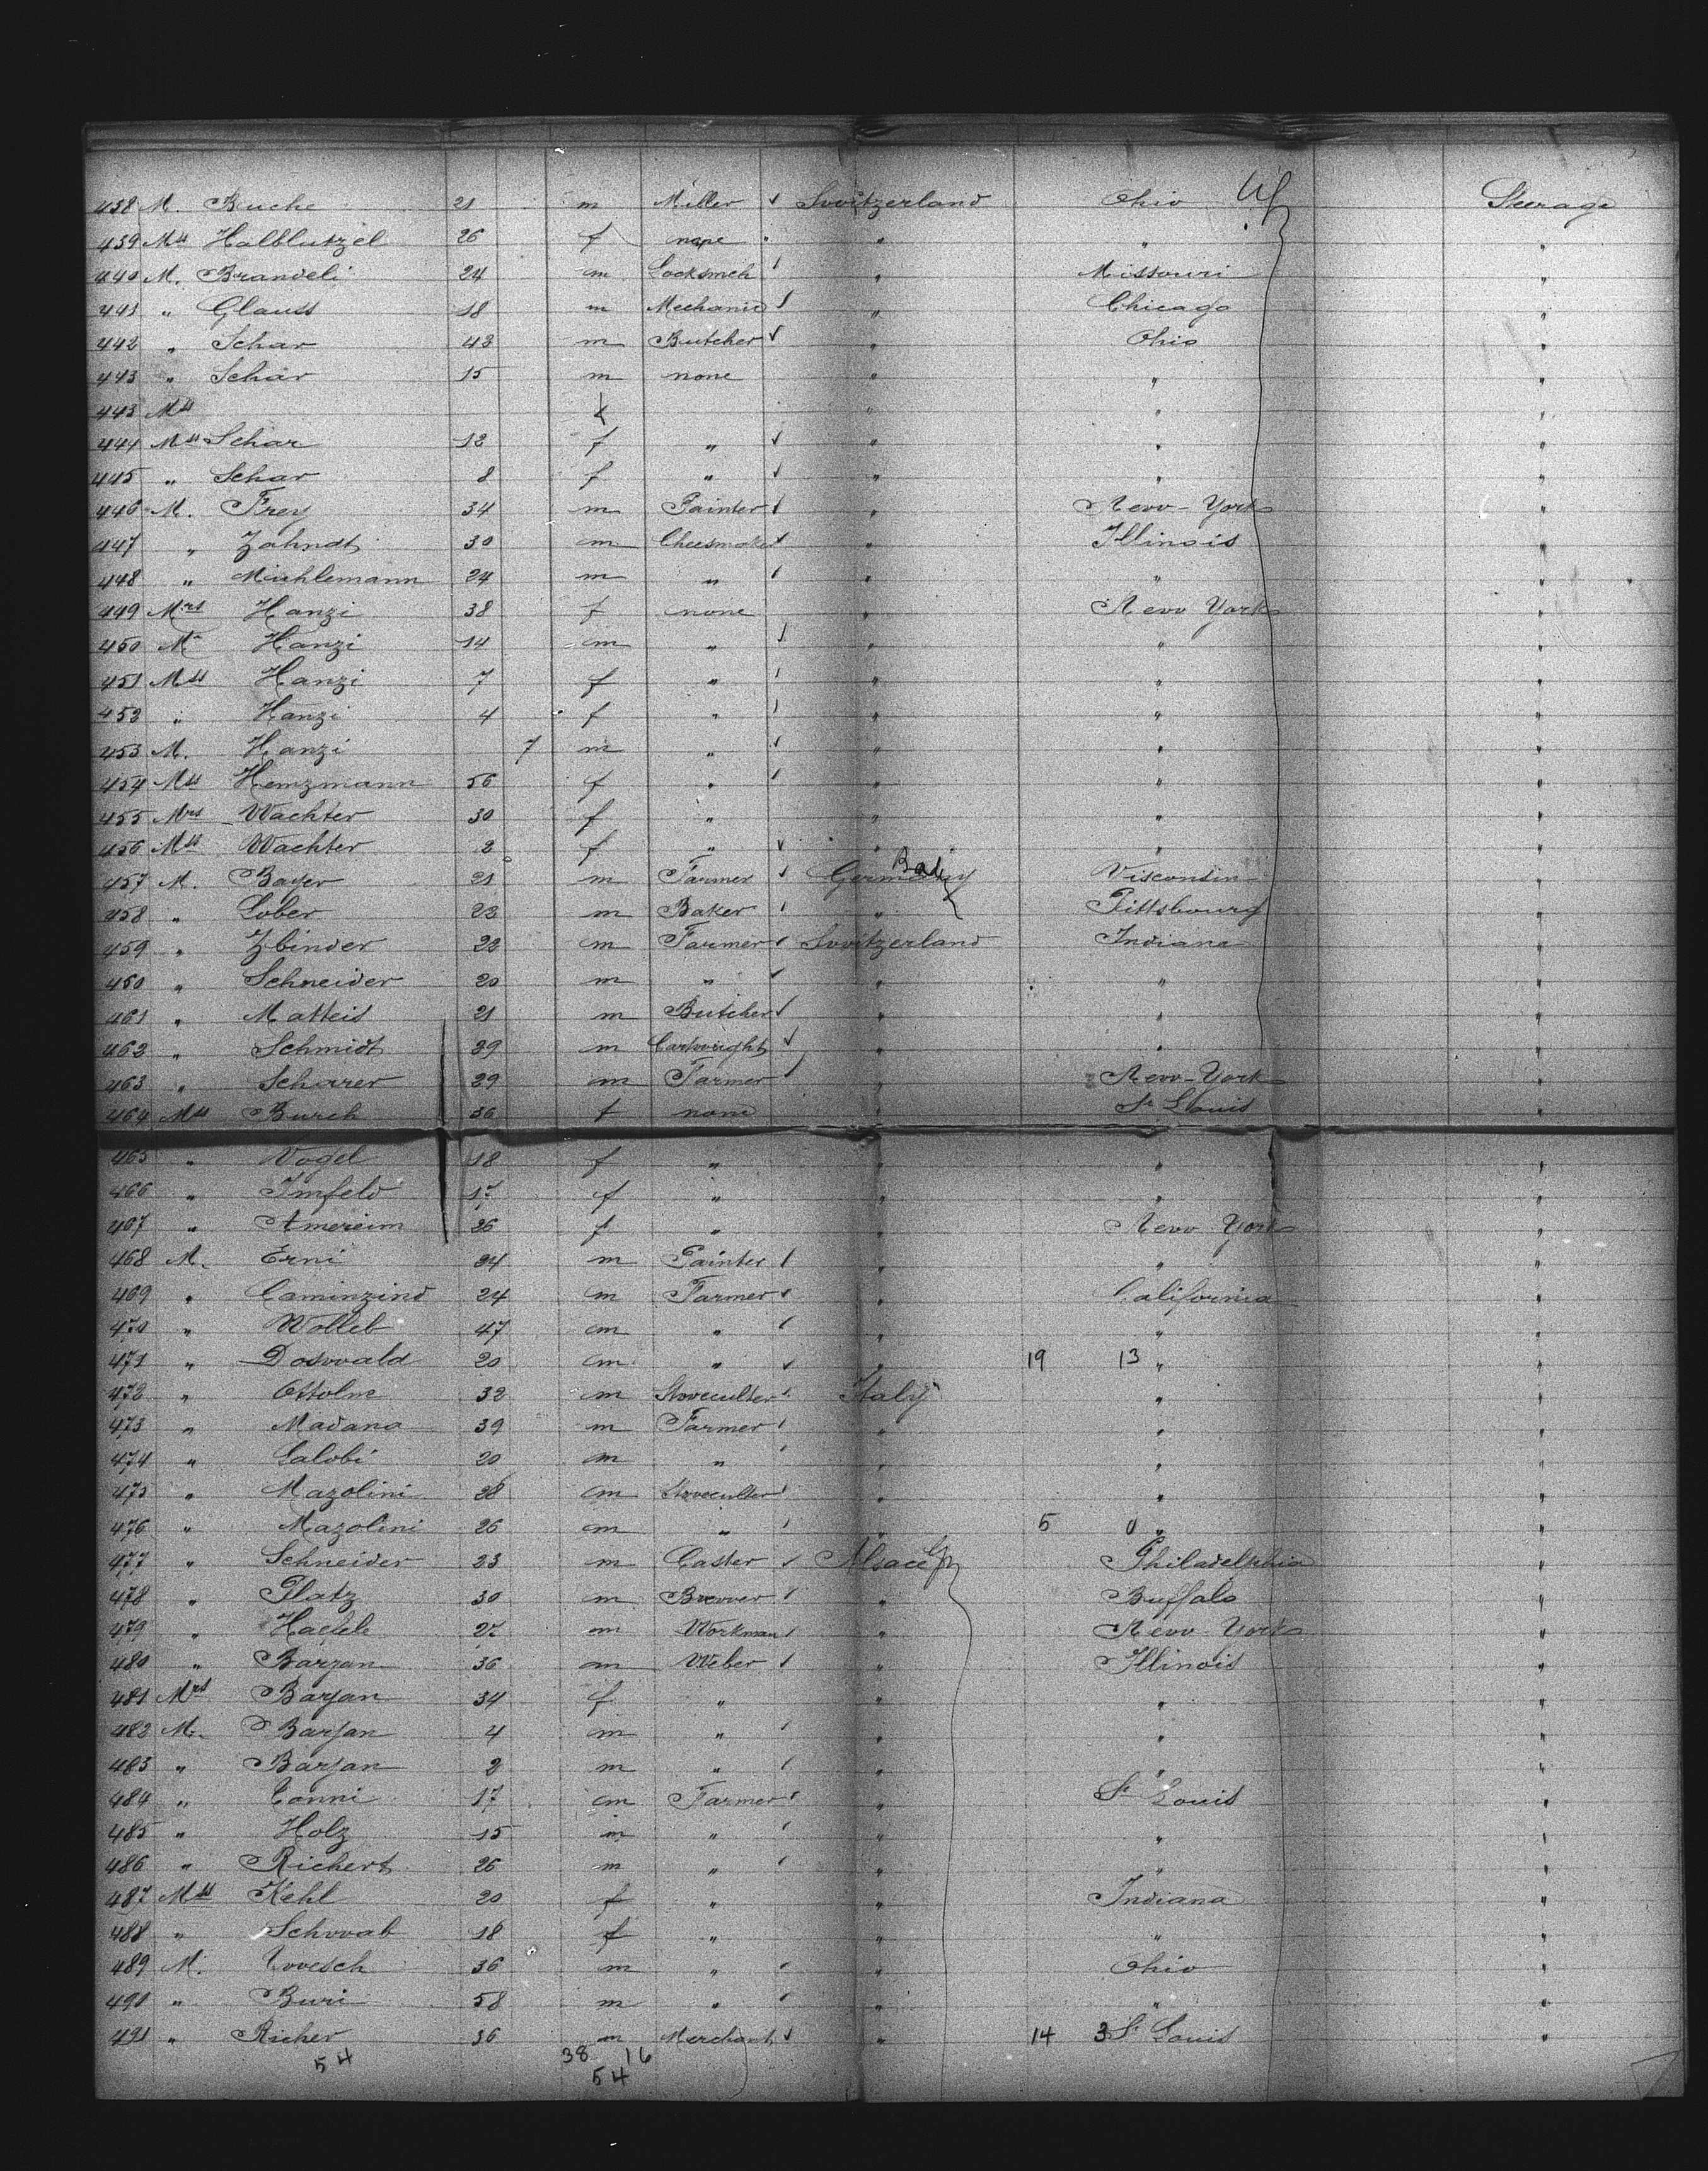 438 M. Buche 21 m Miller ✓ Switzerland Ohio Steerage
439 Mss Halblutzel 26 f none " " " "
440 M. Brandeli 24 m Locksmeh " Missouri "
441 " Glauss 18 m Mechanic " Chicago "
442 " Schar 43 m Butcher ✓ " Ohio "
443 " Schar 15 m none " " "
443 Mss f " " "
444 Mss Schar 12 f " ✓ " " "
445 " Schar 8 f " ✓ " " "
446 M. Frey 34 m Painter " New-York "
447 " Zahndt 30 m Cheesmaker " Illinois "
448 " Mühlemann 24 m " " " "
449 Mrs Hanzi 38 f none " New York "
450 M Hanzi 14 m " " " "
451 Mss Hanzi 7 f " " " "
452 " Hanzi 4 f " " " "
453 M. Hanzi 7 m " " " "
454 Mss Hemzmann 56 f " " " "
455 Mrs Wachter 30 f " " " "
456 Mss Wachter 2 f " ✓ " " "
457 M. Bayer 21 m Farmer ✓ Germany Bad Visconsin "
458 " Lober 23 m Baker " Pittsbourg "
459 " Zbinder 22 m Farmer Switzerland Indiana "
460 " Schneider 20 m " ✓ " " "
461 " Matteis 21 m Butcher " " "
462 " Schmidt 39 m Cartwright ✓ " " "
463 " Scharer 29 m Farmer " New-York "
464 Mss Burch 36 f none " St Louis "
465 " Vogel 18 f " " " "
466 " Imfeld f " " " "
467 " Amereim 26 f " " New York "
468 M. Erni 24 m Painter " " "
469 " Caminzind 24 m Farmer " California "
470 " Wolleb 47 m " " " "
471 " Dosvald 20 m " ✓ " 19 13 " "
472 " Ottolm 32 m Stonecutter Italy " "
473 " Madana 39 m Farmer " " "
474 " Lalobi 20 m " " " "
475 " Mazolini 28 m Stonecutter " " "
476 " Mazolini 26 m " " 5 0 " "
477 " Schneider 23 m Caster ✓ Alsace Philadelphia "
478 " Platz 30 m Brewer " Buffalo "
479 " 27 m Workman " New York "
480 " Barjan 36 m Weber " Illinois "
481 Mrs Barjan 34 f " " " "
482 M. Barjan 4 m " " " "
483 " Barjan 2 m " " " "
484 " Conni 17 m Farmer " St Louis "
485 " Holz 15 m " " " "
486 " Richert 26 m " " " "
487 Mss Kehl 20 f " " Indiana "
488 " Schwab 18 f " " " "
489 M. 36 m " " Ohio "
490 " Buri 58 m " " " "
491 " Richer 36 m Merchant ✓ " 14 3 St Louis "
54 38 16
54